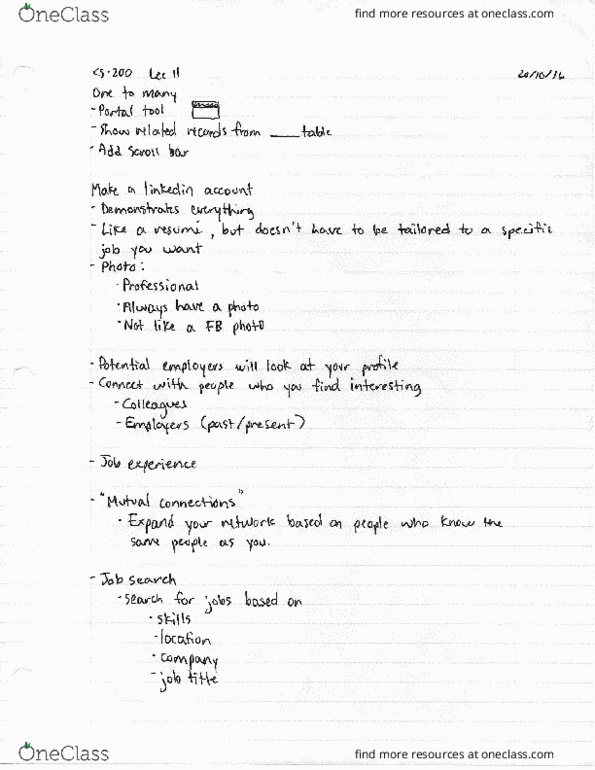 OneClass
find more resources at oneclass.com
CS-200 Lec 11
20/10/16
One to many
- Portal tool
- Show related records from ____ table
- Add scroll bar
Make a linkedin account
- Demonstrates everything
- Like a resumé, but doesn't have to be tailored to a specific
job you want
- Photo:
· Professional
· Always have a photo
· Not like a FB photo
- Potential employers will look at your profile
- Connect with people who you find interesting
- Colleagues
- Employers (past/present)
- Job experience
- "Mutual connections"
· Expand your network based on people who know the
same people as you.
- Job search
- search for jobs based on
· skills
· location
· company
- job title
OneClass
find more resources at oneclass.com